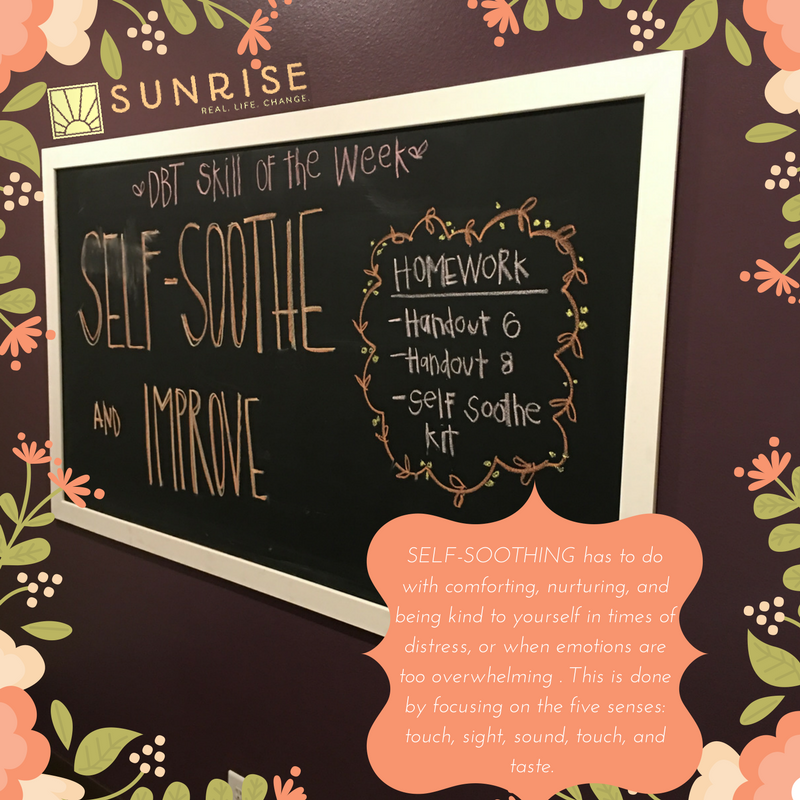 SUNRISE
REAL. LIFE. CHANGE.
DBT Skill of the Week
SELF-SOOTHE
AND IMPROVE
HOMEWORK
-Handout 6
-Handout 8
-Self Soothe
kit
SELF-SOOTHING has to do
with comforting, nurturing, and
being kind to yourself in times of
distress, or when emotions are
too overwhelming . This is done
by focusing on the five senses:
touch, sight, sound, touch, and
taste.